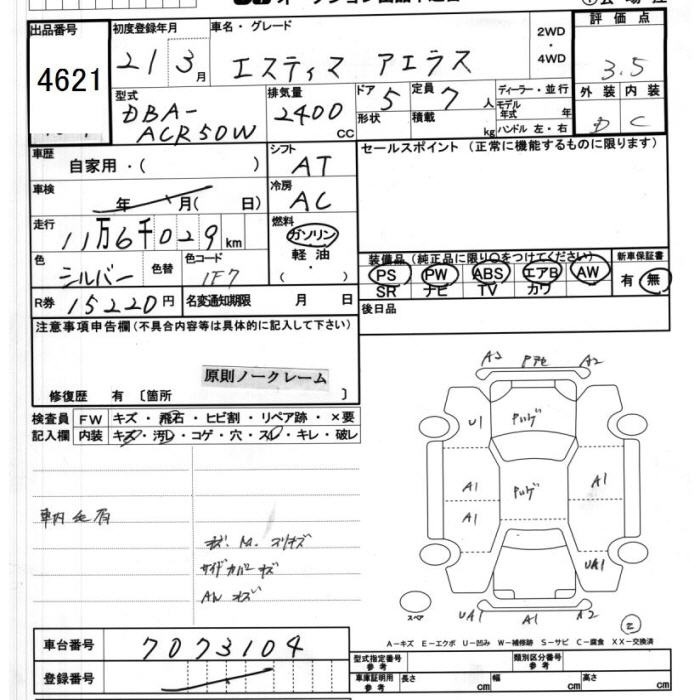 出品番号
4621
初度登録年月
21 3月
車名・グレード
エスティマ アエラス
2WD
・
4WD
評価点
3.5
外装 内装
D C
型式
DBA-
ACR50W
排気量
2400
CC
ドア
5
形状
定員
7人
積載
kg
ディーラー・並行
モデル年式 年
ハンドル 左・右
車歴
自家用・( )
シフト
AT
セールスポイント (正常に機能するものに限ります)
車検
年 月( 日)
冷房
AC
走行
11万6千029km
燃料
ガソリン
軽油
( ・ )
色
シルバー
色替
色コード
1F7
装備品 (純正品に限り○をつけてください)
PS PW ABS エアB AW
SR ナビ TV カワ
新車保証書
有・無
R券
15220円
名変通知期限 月 日
後日品
注意事項申告欄(不具合内容等は具体的に記入して下さい)
原則ノークレーム
修復歴 有 〔箇所 〕
検査員
記入欄
FW キズ・飛石・ヒビ割・リペア跡・×要
内装 キズ・汚レ・コゲ・穴・スレ・キレ・破レ
車内毛有
サイドカバーキズ
A2 A2
U1
A1
A1
A1
UA1
UA1 A1 A2
スペア
2
A-キズ E-エクボ U-凹み W-補修跡 S-サビ C-腐食 XX-交換済
車台番号
7073104
登録番号
型式指定番号
参考
類別区分番号
参考
車庫証明用
参考
長さ cm
幅 cm
高さ cm